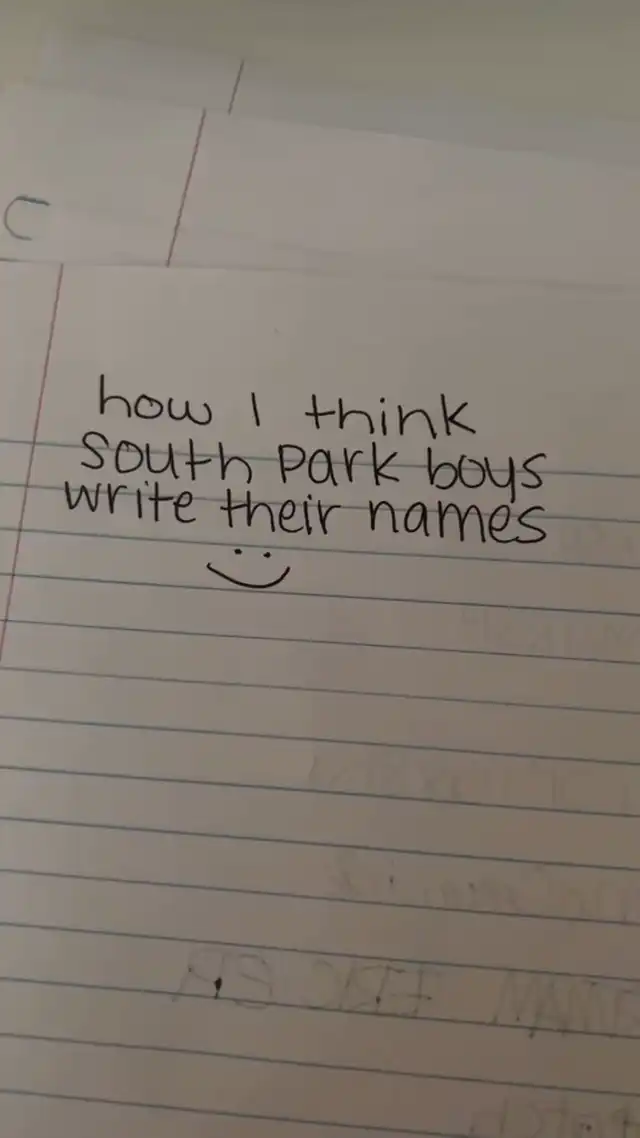 C
how I think
south park boys
write their names